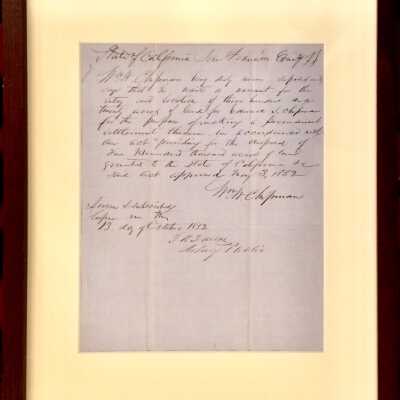 State of California San Francisco County SS
Wm W. Chapman being duly sworn deposes and
says that he wants a warrant for the
entry and location of three hundred and
twenty acres of land for Edward S. Chapman
for the purpose of making a permanent
settlement thereon in accordance with
an act "providing for the disposal of
Five Hundred thousand acres of land
granted to the State of California &c
said act approved May 3, 1852
Wm W. Chapman
Sworn & Subscribed
before me this
13 day of October 1852
Notary Public